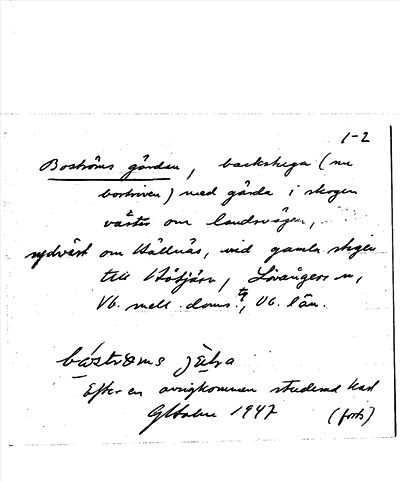 1-2
Boströms gården, backstuga (nu
bortriven) med gärda i skogen
väster om landsvägen,
sydväst om Källnäs, vid gamla stigen
till Hötjärn, Lövångers sn,
Vb. mell. doms. tg, Vb. län.
båstrœms jɛ̀ɭa
Efter en avrigkommen studerad karl
G Holm 1947 (forts)